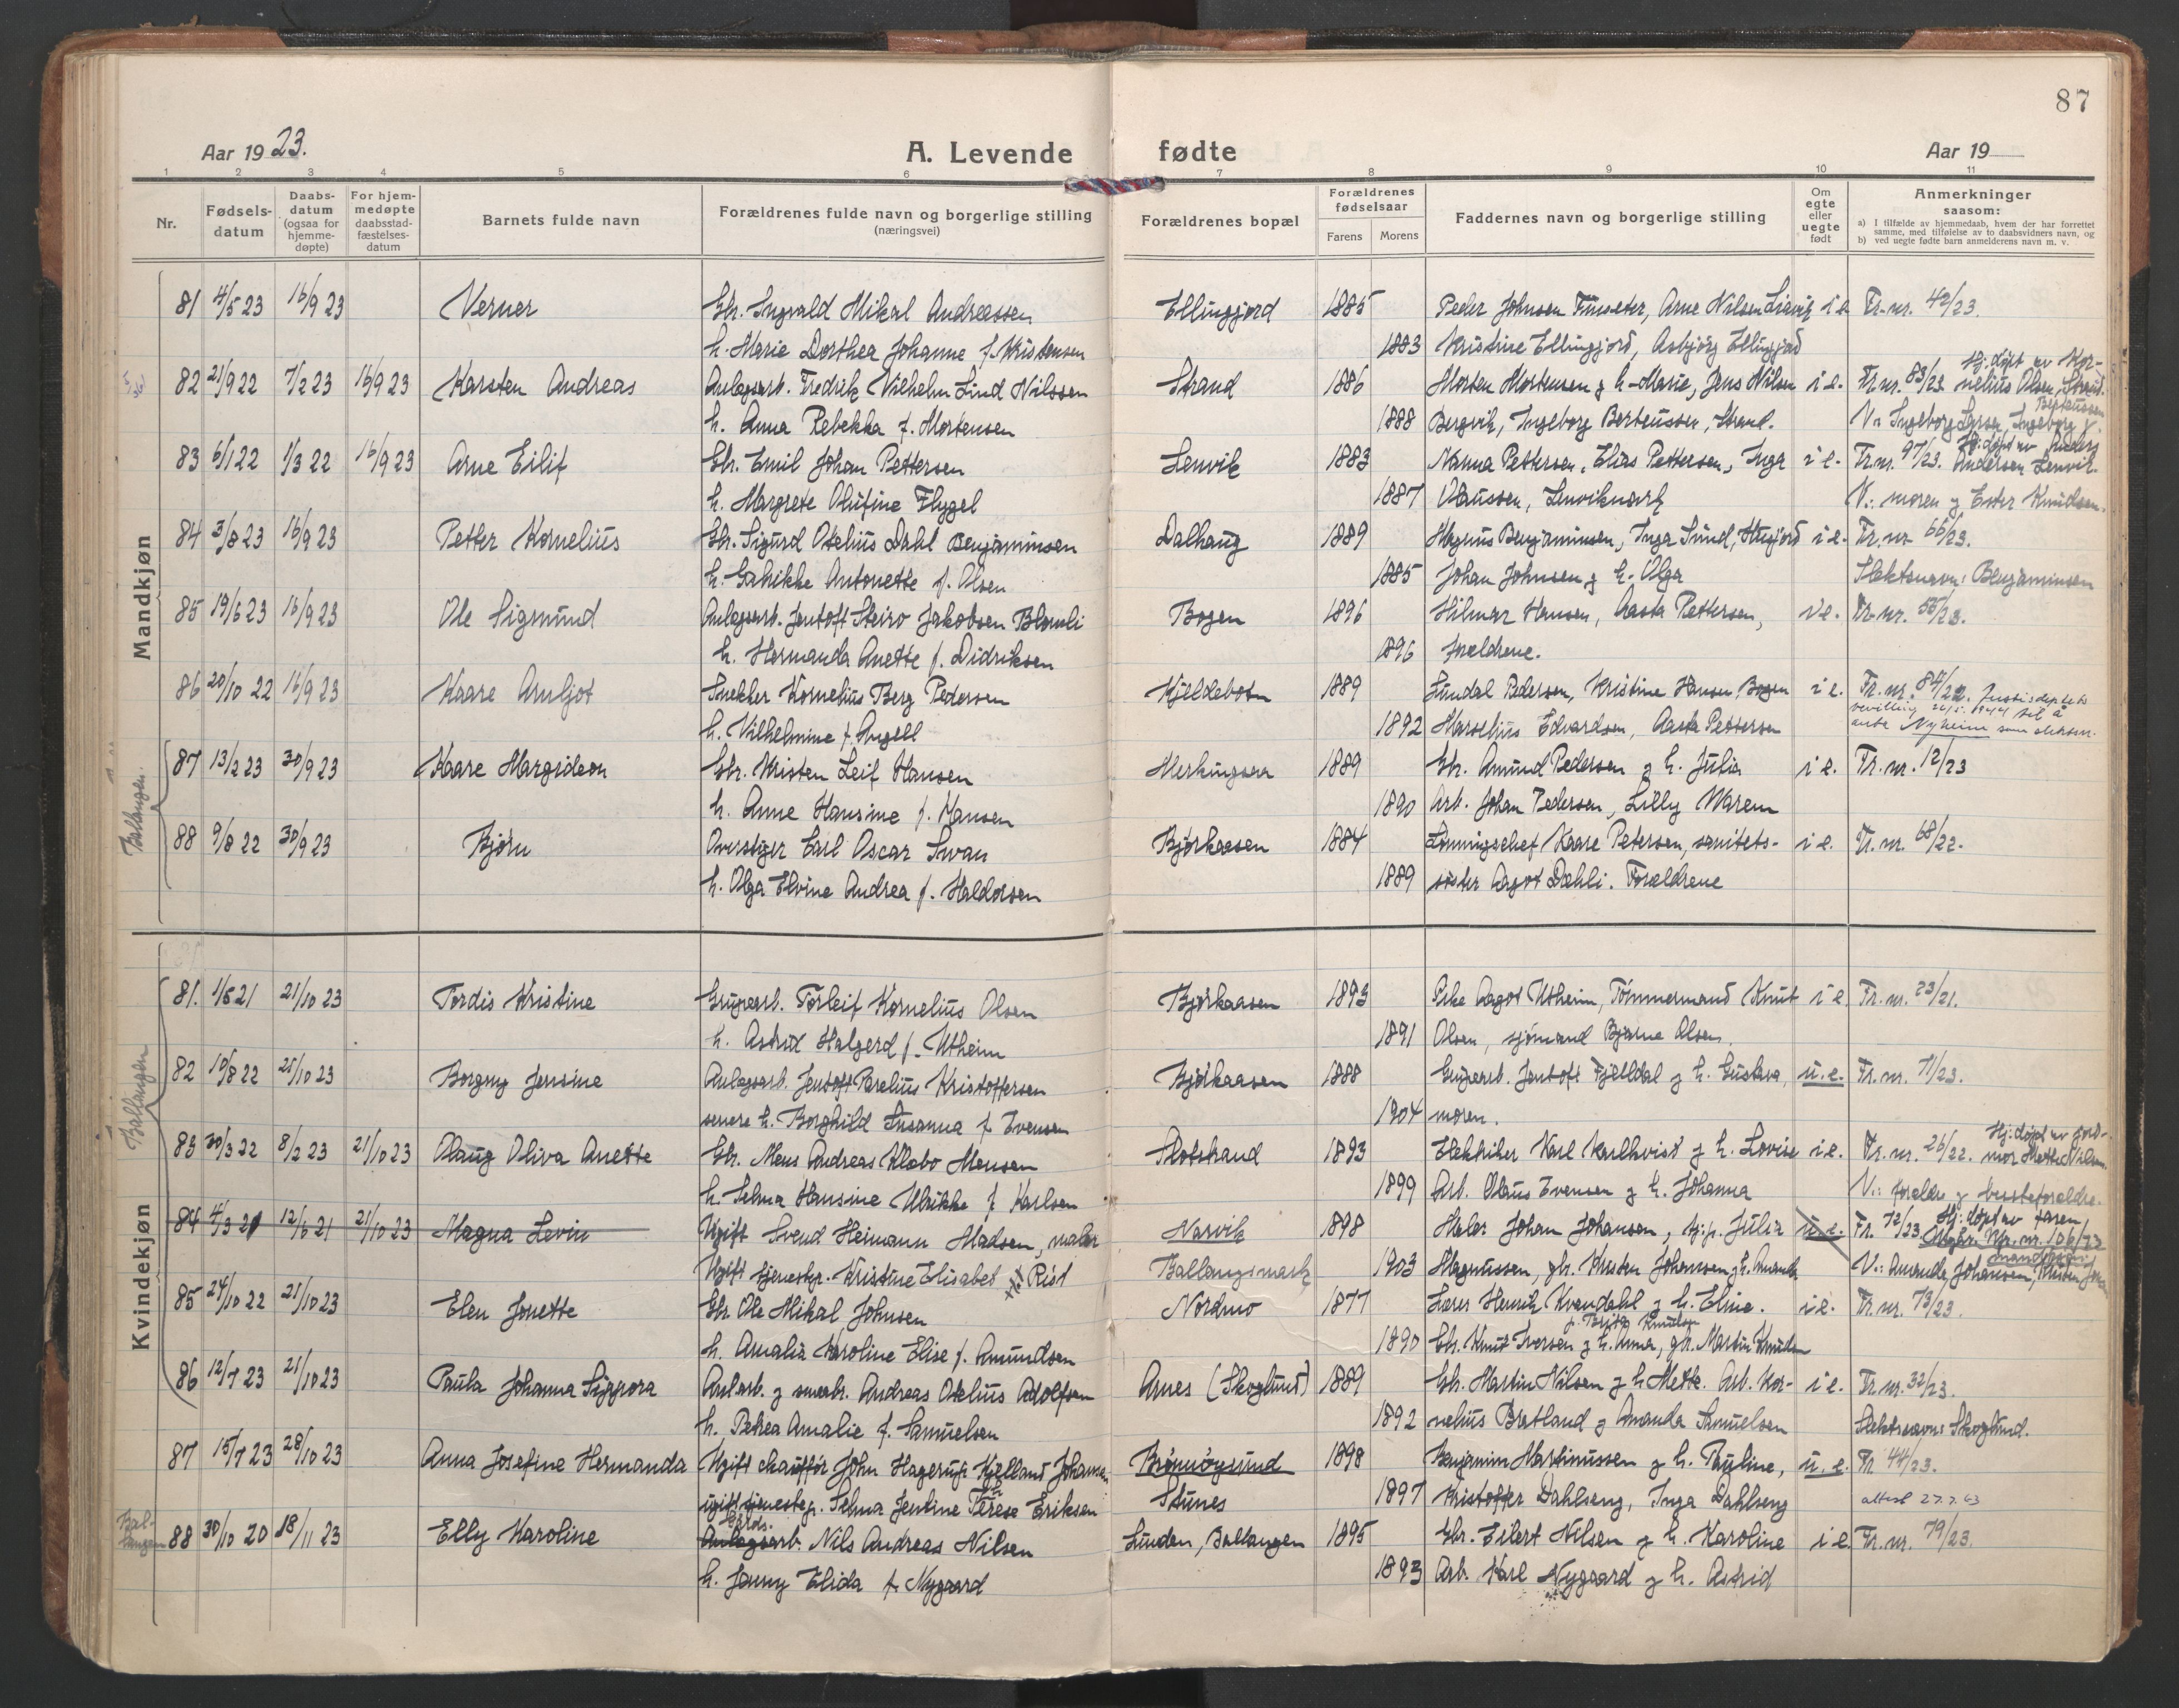 87
Aar 1923.
A. Levende fødte
Aar 19
1 2 3 4 5 6 7 8 9 10 11
Nr.
Fødsels-datum
Daabs-datum (ogsaa for hjemme-døpte)
For hjem-medøpte daabsstad-fæstelses-datum
Barnets fulde navn
Forældrenes fulde navn og borgerlige stilling
(næringsvei)
Forældrenes bopæl
Forældrenes fødselsaar
Farens Morens
Faddernes navn og borgerlige stilling
Om egte eller uegte født
Anmerkninger
saasom:
a) I tilfælde av hjemmedaab, hvem der har forrettet samme, med tilføielse av to daabsvidners navn, og
b) ved uegte fødte barn anmelderens navn m. v.
Mandkjøn
81 4/5 23 16/9 23 Verner Gbr. Ingvald Mikal Andreassen Ellingjord 1885 Peder Johnsen Arne Nilsen i e. Fr. nr. 42/23.
h. Marie Dorthea Johanne f. Kristensen 1883 Kristine Ellingjord, Asbjörg Ellingjord
82 21/9 22 7/2 23 16/9 23 Karsten Andreas Anlegsarb. Fredrik Vilhelm Lind Nilssen Strand 1886 Morten Mortensen og h. Marie, Jens Nilsen i e. Fr. nr. 83/23. Hj. døpt av Kornelius Olsen, Strand.
h. Anna Rebekka f. Mortensen 1888 Bergvik, Ingeborg Berteussen, Strand. V.: Ingeborg Larsen, Ingeborg J. Berteussen
83 6/1 22 1/3 22 16/9 23 Arne Eilif Gbr. Emil Johan Pettersen Lenvik 1883 Nanna Pettersen, Elias Pettersen, Inga i e. Fr. nr. 97/23. Hj. døpt av Anders Andersen Lenvik.
h. Margrete Olufine Flygel 1887 Olaussen, Lenvikmark V.: moren og Ester Knudsen.
84 3/8 23 16/9 23 Petter Kornelius Gbr. Sigurd Otelius Dahl Benjaminsen Dalhaug 1889 Magnus Benjaminsen, Inga Lund, i e. Fr. nr. 66/23.
h. Antonette f. Olsen 1885 Johan Johnsen og h. Olga Slektsnavn: Benjaminsen
85 19/6 23 16/9 23 Ole Sigmund Anlegsarb. Jentoft Steiro Jakobsen Blomli Bogen 1896 Hilmar Hansen, Aasta Pettersen, i e. Fr. nr. 55/23.
h. Hermanda Anette f. Didriksen 1896 forældrene.
86 20/10 22 16/9 23 Kaare Arnljot Snekker Kornelius Berg Pedersen Kjeldebotn 1889 Lundal Pedersen, Kristine Hansen, Bogen i e. Fr. nr. 84/22. Justisdeptets bevilling 26/5 1944 til å
h. Vilhelmine f. Angell 1892 Marselius Edvardsen, Aasta Pettersen anta Nyheim som slektsn.
Ballangen.
87 13/2 23 30/9 23 Kaare Margideon Gbr. Kristen Leif Hansen 1889 Gbr. Amund Pedersen og h. Julia i e. Fr. nr. 12/23
h. Anne Hansine f. Hansen 1890 Arb. Johan Pedersen, Lilly Maren
88 9/8 22 30/9 23 Bjørn Overstiger Carl Oscar Swan Bjørkaasen 1884 Lønningschef Kaare Petersen, sanitets- i e. Fr. nr. 68/22.
h. Olga Elvine Andrea f. Haldorsen 1889 søster Aagot Dæhli. Forældrene
Kvindekjøn
Ballangen
81. 1/5 21 21/10 23 Tordis Kristine Grupearb. Torleif Kornelius Olsen Bjørkaasen 1893 Pike Aagot Utheim, Tømmermand Knut i e. Fr. nr. 23/21.
h. Astrid Halgerd f. Utheim 1891 Olsen, sjømand Bjarne Olsen.
82 19/8 22 21/10 23 Borgny Jensine Anlegsarb. Jentoft Parelius Kristoffersen Bjørkaasen 1888 Grupearb. Jentoft Fjelldal og h. Gustava, u. e. Fr. nr. 71/23.
senere h. Borghild Susanna f. Evensen 1904 moren.
83 30/3 22 8/2 23 21/10 23 Olaug Oliva Anette Gbr. Mens Andreas Klebo Monsen 1893 Elektriker Karl Karlkvist og h. Lovise i e. Fr. nr. 26/22. Hj. døpt av jordmor Mette Nilsen.
h. Selma Hansine Ulrikke f. Karlsen 1899 Arb. Olaus Evensen og h. Johanna V.: forældre og besteforældre.
84 4/3 21 12/6 21 21/10 23 Magna Levin Ugift Svend Heimann Madsen, maler Narvik 1898 Maler Johan Johansen, Julia u. e. Fr. 72/23. Hj. døpt av faren. Utgår. nr. 106/23 mandkjøn
Ugift tjenestp. Kristine Elisabet Rist Ballangsmark 1903 Magnussen, gbr. Kristen Johansen og h. Amanda V.: Amanda Johansen, Kristen
85 24/10 22 21/10 23 Elen Jonette Gbr. Ole Mikal Johnsen Nordmo 1877 Lærer Henrik Kvandahl og h. Eline. i e. Fr. nr. 73/23.
h. Amalia Karoline Elise f. Amundsen 1890 Gbr. Knut Iversen og h. Anna, gbr. Martin Knudsen
86 12/7 23 21/10 23 Paula Johanna Siggora Anl.arb. og smaabr. Andreas Otelius Adolfsen Arnes (Skoglund) 1889 Gbr. Martin Nilsen og h. Mette. Arb. Kor- i e. Fr. nr. 32/23.
h. Petrea Amalie f. Samuelsen 1892 nelius Bratland og Amanda Samuelsen Slektsnavn: Skoglund.
87 15/7 23 28/10 23 Anna Josefine Hermanda Ugift chauffør John Hagerup Kjelland Johansen Brønnøysund 1898 Benjamin Martinussen og h. Pauline, u. e. Fr 44/23.
ugift tjenestep. Selma Jentine Terese Eriksen Stunes 1897 Kristoffer Dahlseng, Inga Dahlseng attest 27.7.63
Ballangen 88 30/10 20 18/11 23 Elly Karoline Anlegsarb. Nils Andreas Nilsen Linden, Ballangen 1895 Gbr. Eilert Nilsen og h. Karoline i e. Fr. nr. 79/23.
h. Jenny Elida f. Nygaard 1893 Arb. Karl Nygaard og h. Astrid